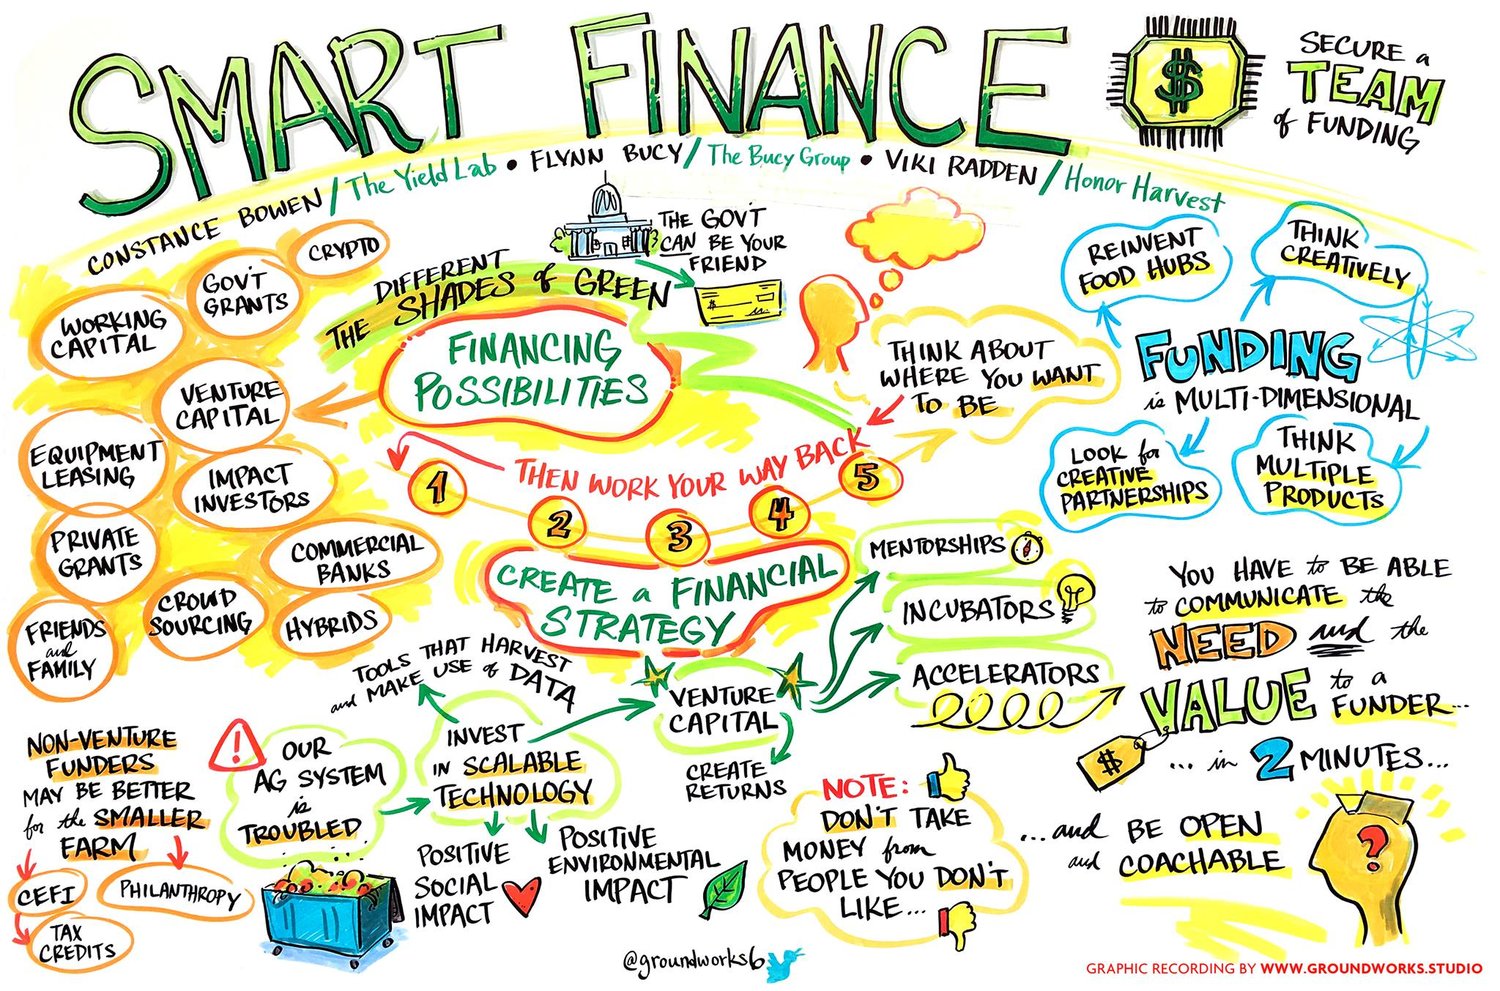 SMART FINANCE
SECURE a
TEAM
of FUNDING
CONSTANCE BOWEN / The Yield Lab • FLYNN BUCY / The Bucy Group • VIKI RADDEN / Honor Harvest
CRYPTO
GOV'T
GRANTS
WORKING
CAPITAL
VENTURE
CAPITAL
EQUIPMENT
LEASING
IMPACT
INVESTORS
PRIVATE
GRANTS
COMMERCIAL
BANKS
CROWD
SOURCING
HYBRIDS
FRIENDS
and
FAMILY
THE DIFFERENT
SHADES of GREEN
THE GOV'T
CAN BE YOUR
FRIEND
$
FINANCING
POSSIBILITIES
THINK ABOUT
WHERE YOU WANT
TO BE
THEN WORK YOUR WAY BACK
1
2
3
4
5
CREATE a FINANCIAL
STRATEGY
REINVENT
FOOD HUBS
THINK
CREATIVELY
FUNDING
is MULTI-DIMENSIONAL
LOOK for
CREATIVE
PARTNERSHIPS
THINK
MULTIPLE
PRODUCTS
MENTORSHIPS
INCUBATORS
ACCELERATORS
YOU HAVE to BE ABLE
to COMMUNICATE the
NEED and the
VALUE to a
FUNDER...
$
... in 2 MINUTES...
...and BE OPEN
and COACHABLE
?
NON-VENTURE
FUNDERS
MAY BE BETTER
for the SMALLER
FARM
CEFI
PHILANTHROPY
TAX
CREDITS
!
OUR
AG SYSTEM
is
TROUBLED
TOOLS THAT HARVEST
and MAKE USE of DATA
INVEST
IN SCALABLE
TECHNOLOGY
POSITIVE
SOCIAL
IMPACT
POSITIVE
ENVIRONMENTAL
IMPACT
VENTURE
CAPITAL
CREATE
RETURNS
NOTE:
DON'T TAKE
MONEY from
PEOPLE YOU DON'T
LIKE...
@groundworks6
GRAPHIC RECORDING BY WWW.GROUNDWORKS.STUDIO
$